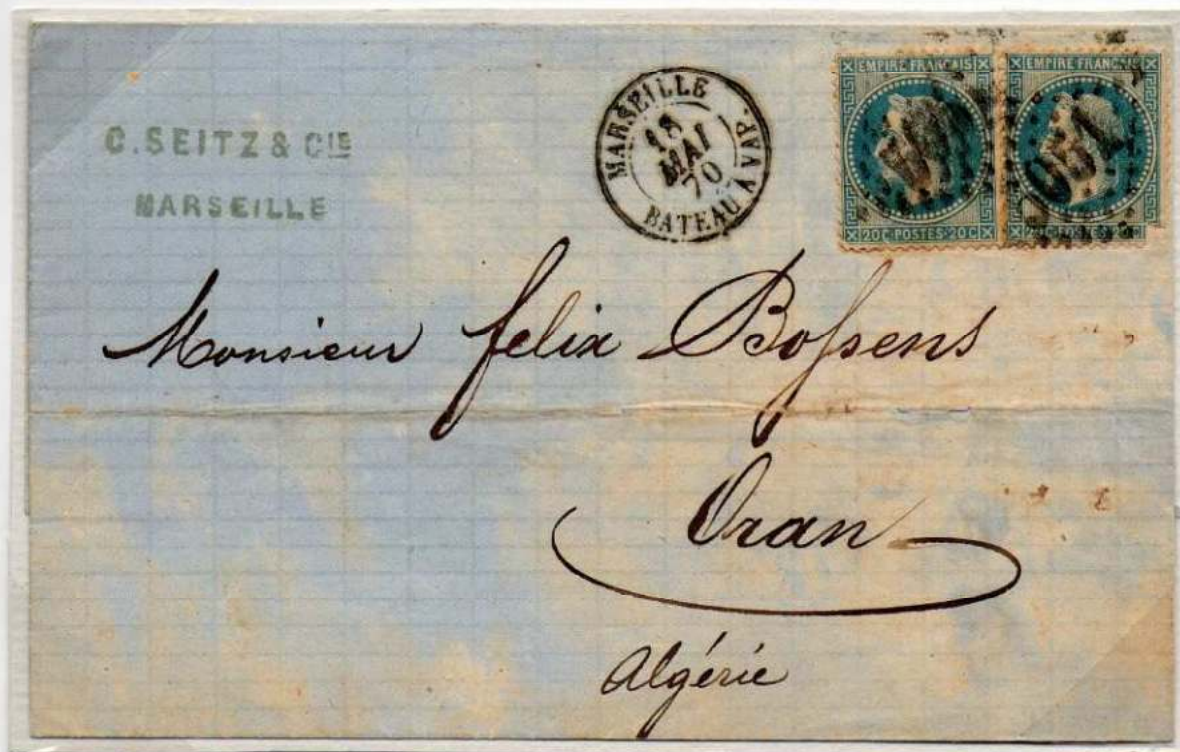 C. SEITZ & CIE
MARSEILLE
MARSEILLE
18
MAI
70
BATEAU A VAP.
EMPIRE FRANÇAIS
20C·POSTES·20C
EMPIRE FRANÇAIS
20C·POSTES·20C
Monsieur felix Boſsens
Oran
Algérie